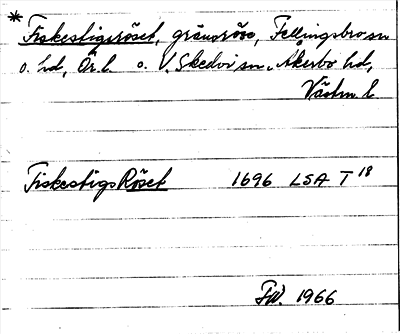 * Fiskestigsröset, gränsröse, Fellingsbro sn
o. hd, Ör. l. o. V. Skedvi sn, Åkerbo hd,
Västm. l.
FiskestigsRöset 1696 LSA T 18
FW. 1966